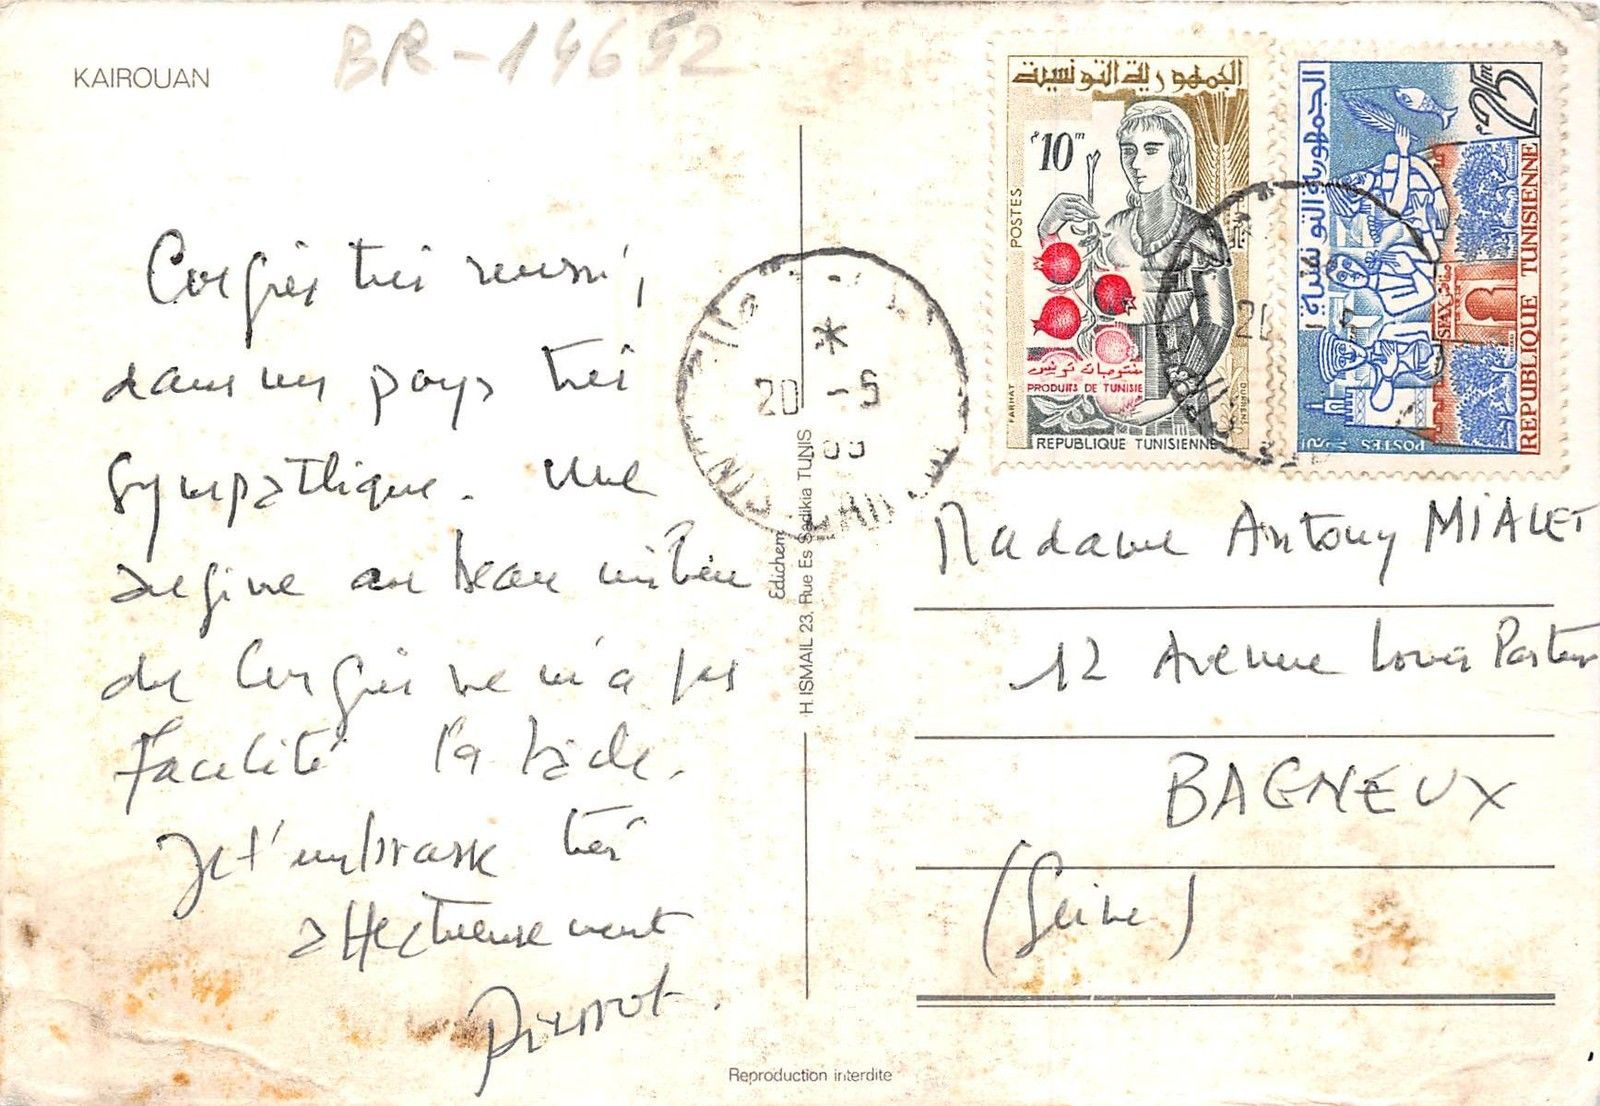 KAIROUAN
BR-14652
Congrès très réussi,
dans un pays très
sympathique. Une
angine au beau milieu
du Congrès ne m'a pas
facilité la tâche.
Je t'embrasse très
affectueusement
Pierrot.
20 -5
Edichem
H. ISMAIL 23, Rue Es Sadikia TUNIS
Reproduction interdite
الجمهورية التونسية
10m
POSTES
منتوجات تونس
PRODUITS DE TUNISIE
FARHAT
REPUBLIQUE TUNISIENNE
الجمهورية التونسية
25m
SFAX صفاقس
POSTES البريد
REPUBLIQUE TUNISIENNE
Madame Antony MIALET
12 Avenue Louis Pasteur
BAGNEUX
(Seine)